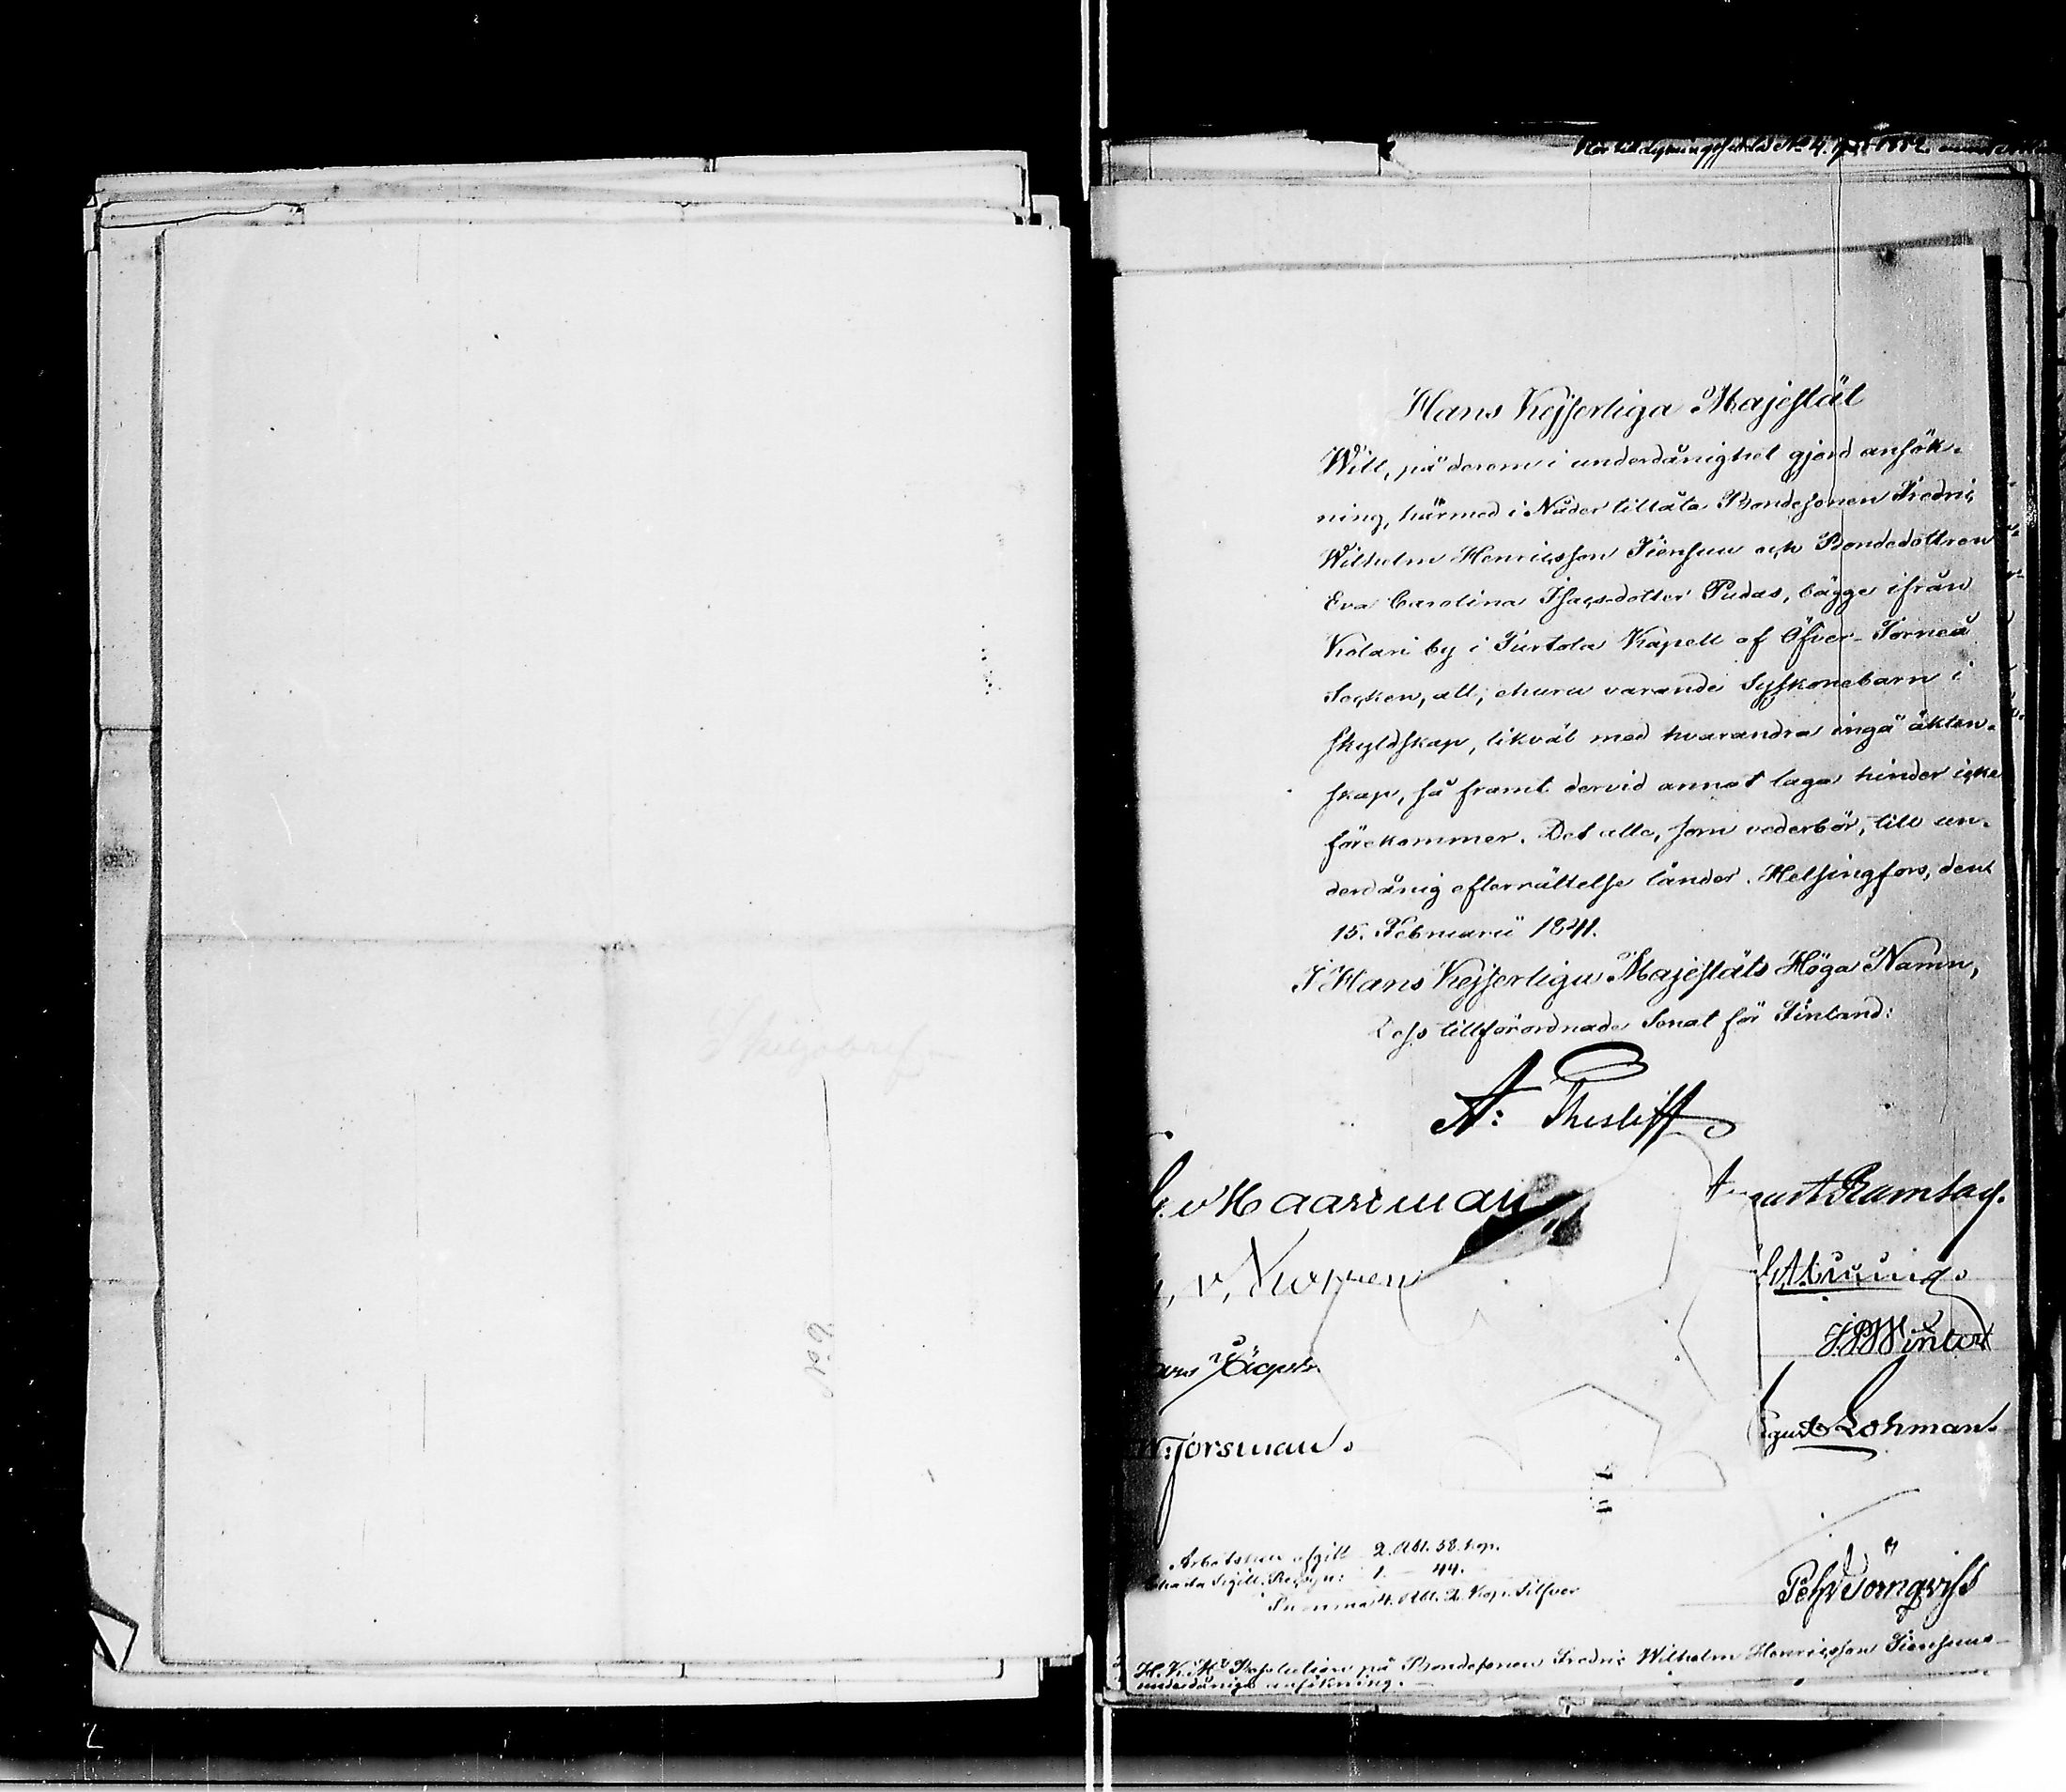 Skiljobref
No 9.
Hans Kejserliga Majestät
Will, på derom i underdånighet gjord ansök-
ning, härmed i Nåder tillåta Bondesonen Fredric
Wilhelm Henricsson Tiensuu och Bondedottren
Eva Carolina Isacsdotter Pudas, bägge ifrån
Kolari by i Turtola Kapell af Öfver-Torneå
Socken, att, ehuru varande Syskonebarn i
skyldskap, likväl med hvarandra ingå äkten-
skap, så framt dervid annat laga hinder icke
förekommer. Det alle, som vederbör, till un-
derdånig efterrättelse länder. Helsingfors, den
15. Februarii 1841.
I Hans Kejserliga Majestäts Höga Namn,
Dess tillförordnade Senat för Finland:
A: Thesleff
v Haartman
August Ramsay.
J. P. Winter
August Lohman.
Forsman.
Pehr Törnqvist
afgift 2. Rbl. 58. kop.
Charta Sigill. Recogn: 1. — 44.
Summa 4. Rbl. 2. Kop. Silfver
H. K. M:s Resolution på Bondesonen Fredric Wilhelm Henricsson Tiensuus
underdåniga ansökning.